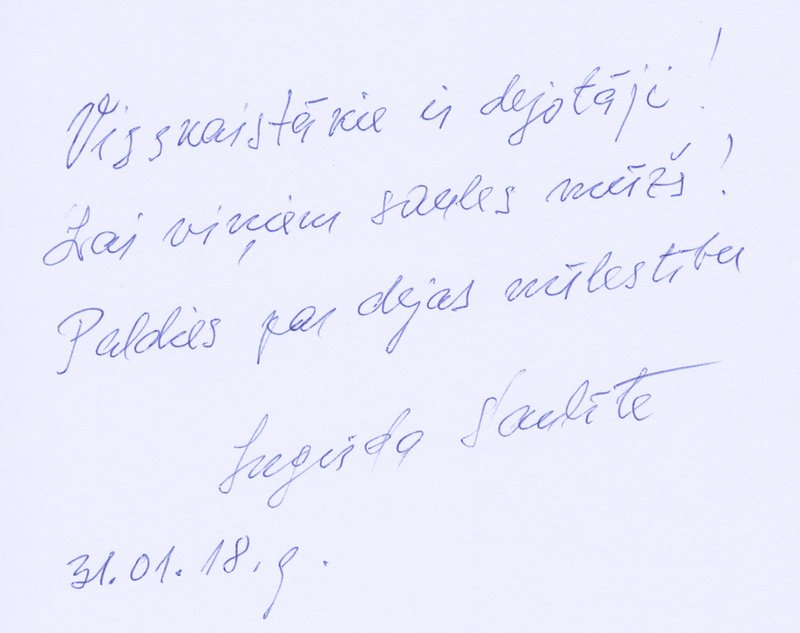 Visskaistākie ir dejotāji!
Lai viņiem saules mūžs!
Paldies par dejas mīlestību
Ingrīda Saulīte
31.01.18.g.